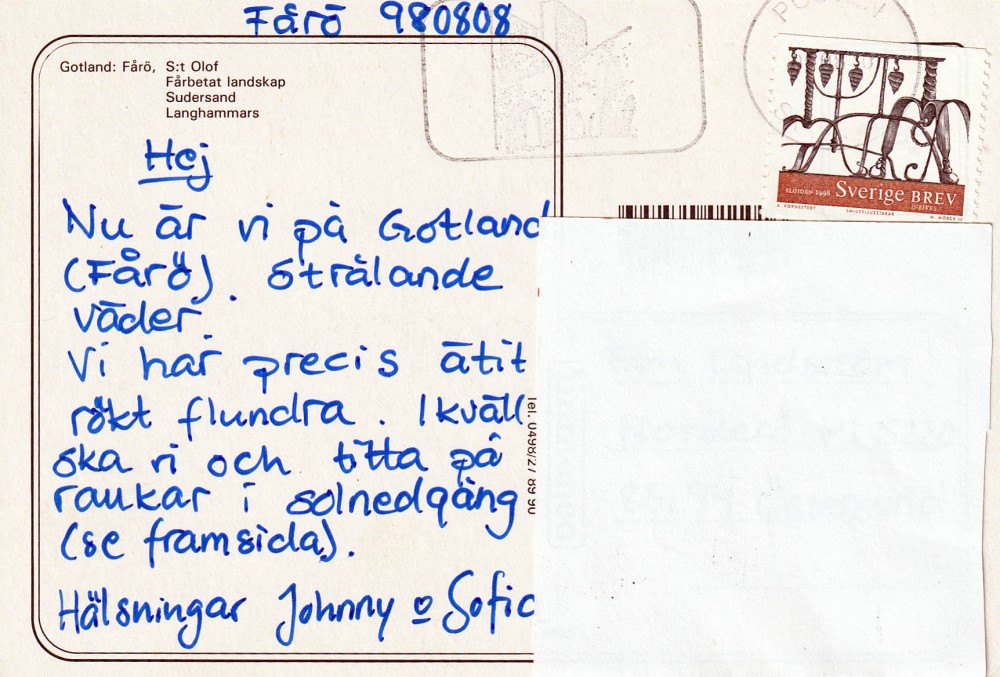 Fårö 980808
Gotland: Fårö, S:t Olof
Fårbetat landskap
Sudersand
Langhammars
Hej
Nu är vi på Gotland
(Fårö). Strålande
väder.
Vi har precis ätit
rökt flundra. Ikväll
ska vi och titta på
raukar i solnedgång
(se framsida).
Hälsningar Johnny o Sofie
Tel. 0498/27 89 90
SLÖJDEN 1998 Sverige BREV
INRIKES